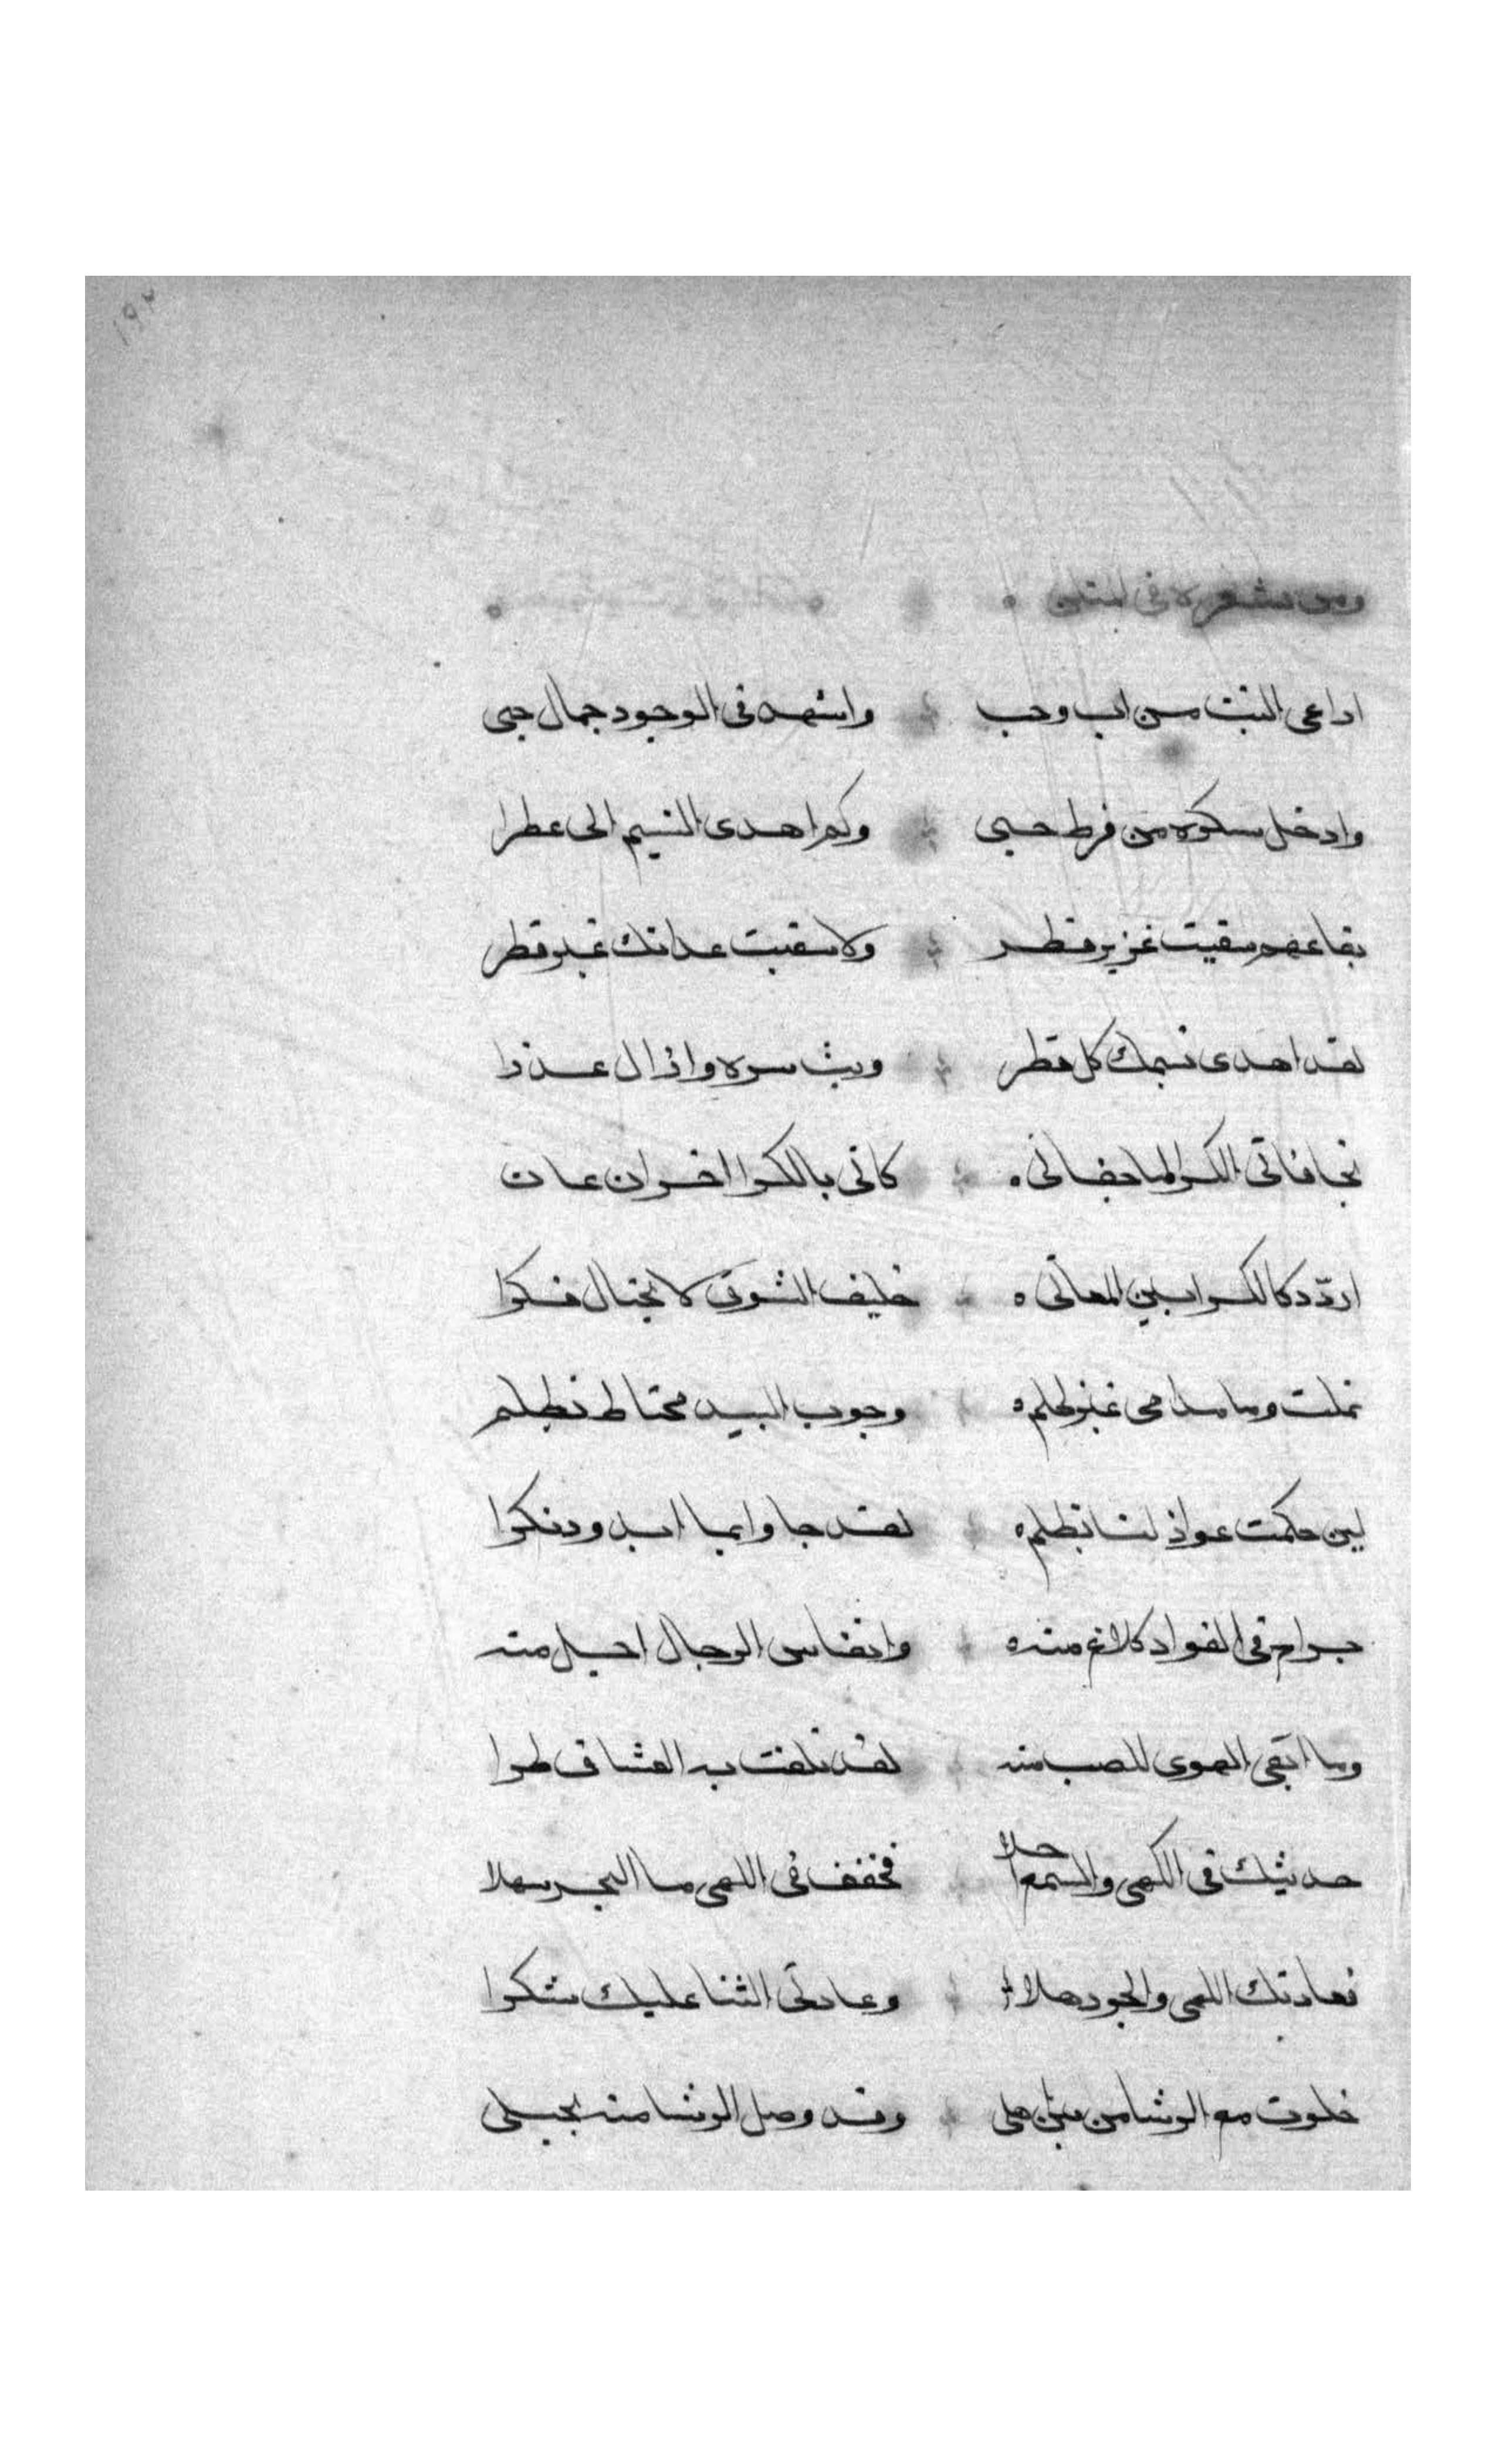 ١٩٢
ومن شعره في
اداعي النبت من اب وحب واشهد في الوجود جمال حبي
وادخل سكره من فرط حسبي وكم اهدى النسيم الى عطرا
بقاعهم سقيت غزير قطر ولا سقيت عداتك غير قطر
لقد اهدى نسيمك كل قطر وبث سره واذال عذرا
تجافاني الكرا لما جفاني كاني بالكرا اخوان عان
اردد كالكرا بين المعاني حليف الشوق لا يختال فكرا
ثملت وما مدامي غير ظلم وجوب البيد محتاط بظلم
لين حكمت عواذلنا بظلم لقد جاوا بما ابدوه نكرا
جراح في الفواد كلاغ منه وانفاس الرجال احيل منه
وما ابقى الهوى للصب منه لقد تلفت به العشاق طرا
حديثك في الكهى والسمع احلا فخفف في اللهى ما البحر سهلا
فعادتك اللهى والجود هلا وعادتي الثنا عليك شكرا
خلوت مع الرشا من بين اهلي وقد وصل الرشا منه بحبلي